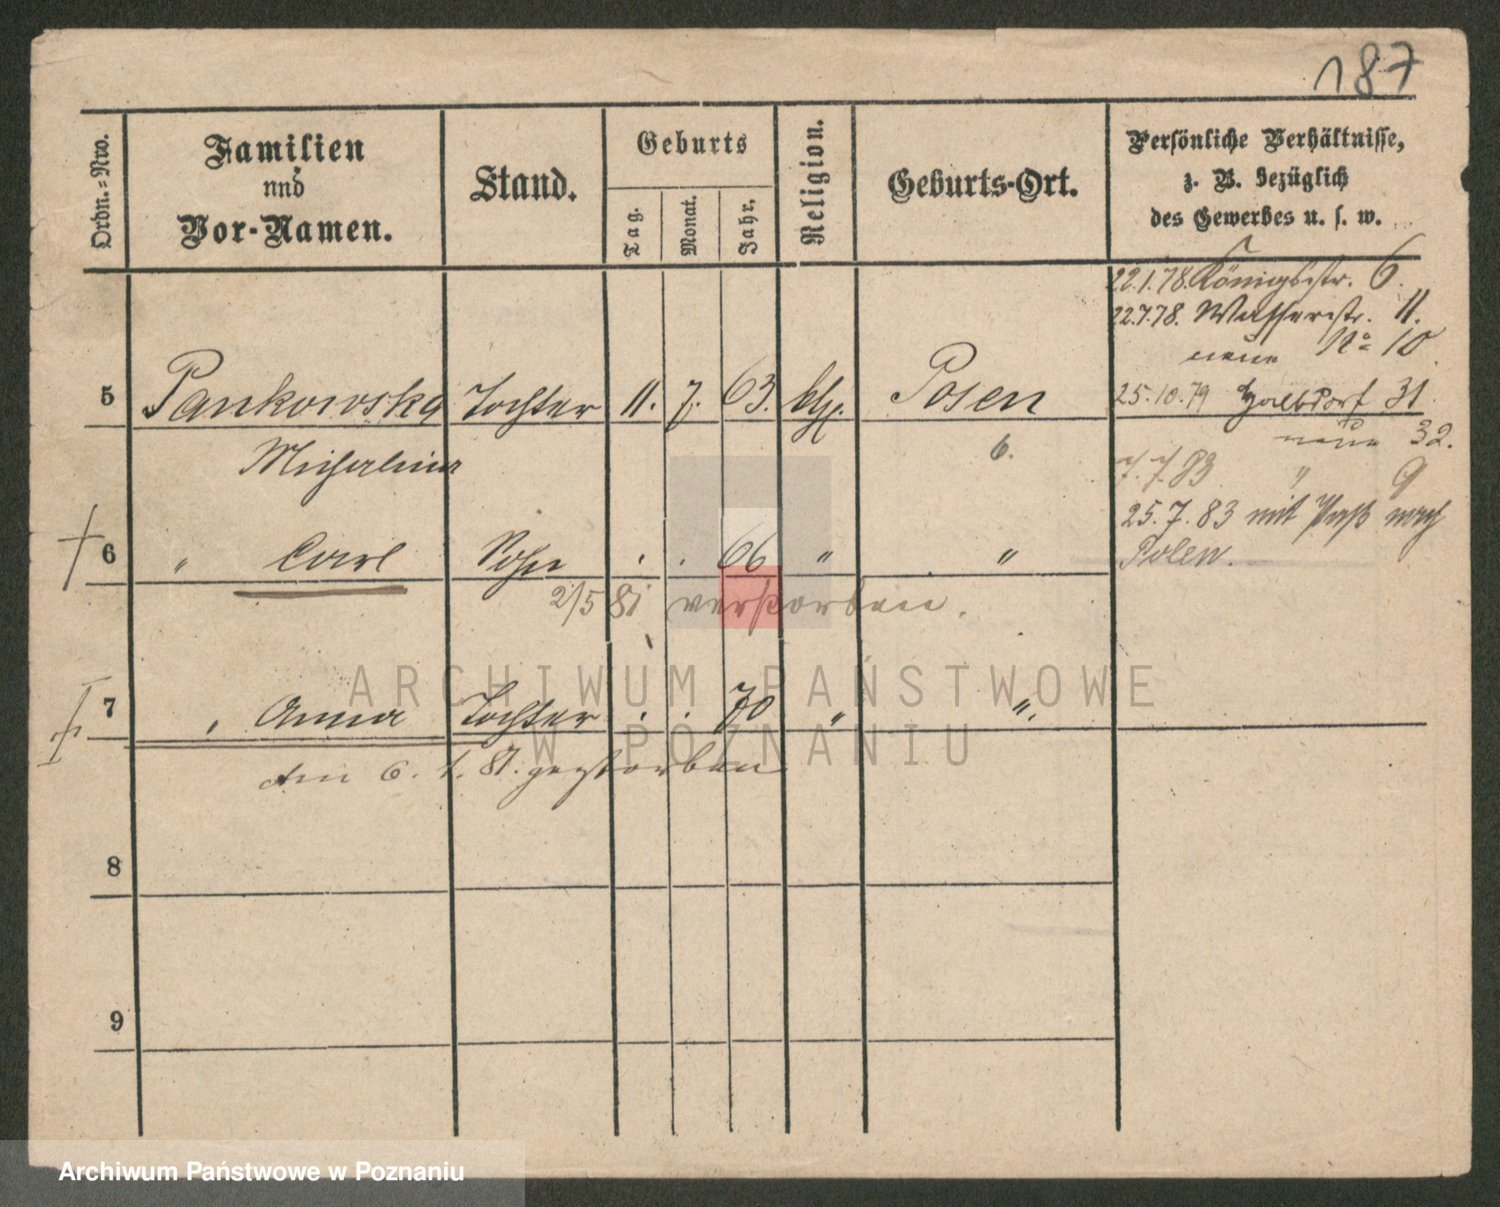 187
Ordn.-Nro.
Familien
und
Vor-Namen.
Stand.
Geburts
Tag.
Monat.
Jahr.
Religion.
Geburts-Ort.
Persönliche Verhältnisse,
z. B. bezüglich
des Gewerbes u. s. w.
22.1.78. Königsstr. 6.
22.7.78. Wasserstr. 11.
neue No 10
5 Pankowska Tochter 11. 7. 63. kth. Posen
25.10.79 Halbdorf 31
neue 32.
Michalina
6.
7.7.83 " 9
25.7.83 mit Paß nach
Polen.
6 " Carl Sohn . . 66 " "
2/5 81 verstorben.
7 " Anna Tochter . . 70 " "
Am 6. 1. 81. gestorben
8
9
ARCHIWUM PAŃSTWOWE
W POZNANIU
Archiwum Państwowe w Poznaniu